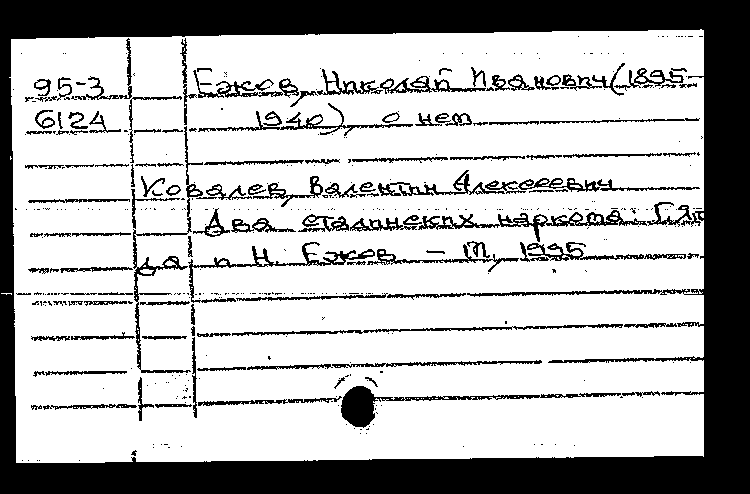 95-3 Ежов, Николай Иванович (1895-
6124 1940), о нем
Ковалев, Валентин Алексеевич
Два сталинских наркома: Г.Яго
да и Н. Ежов - М, 1995